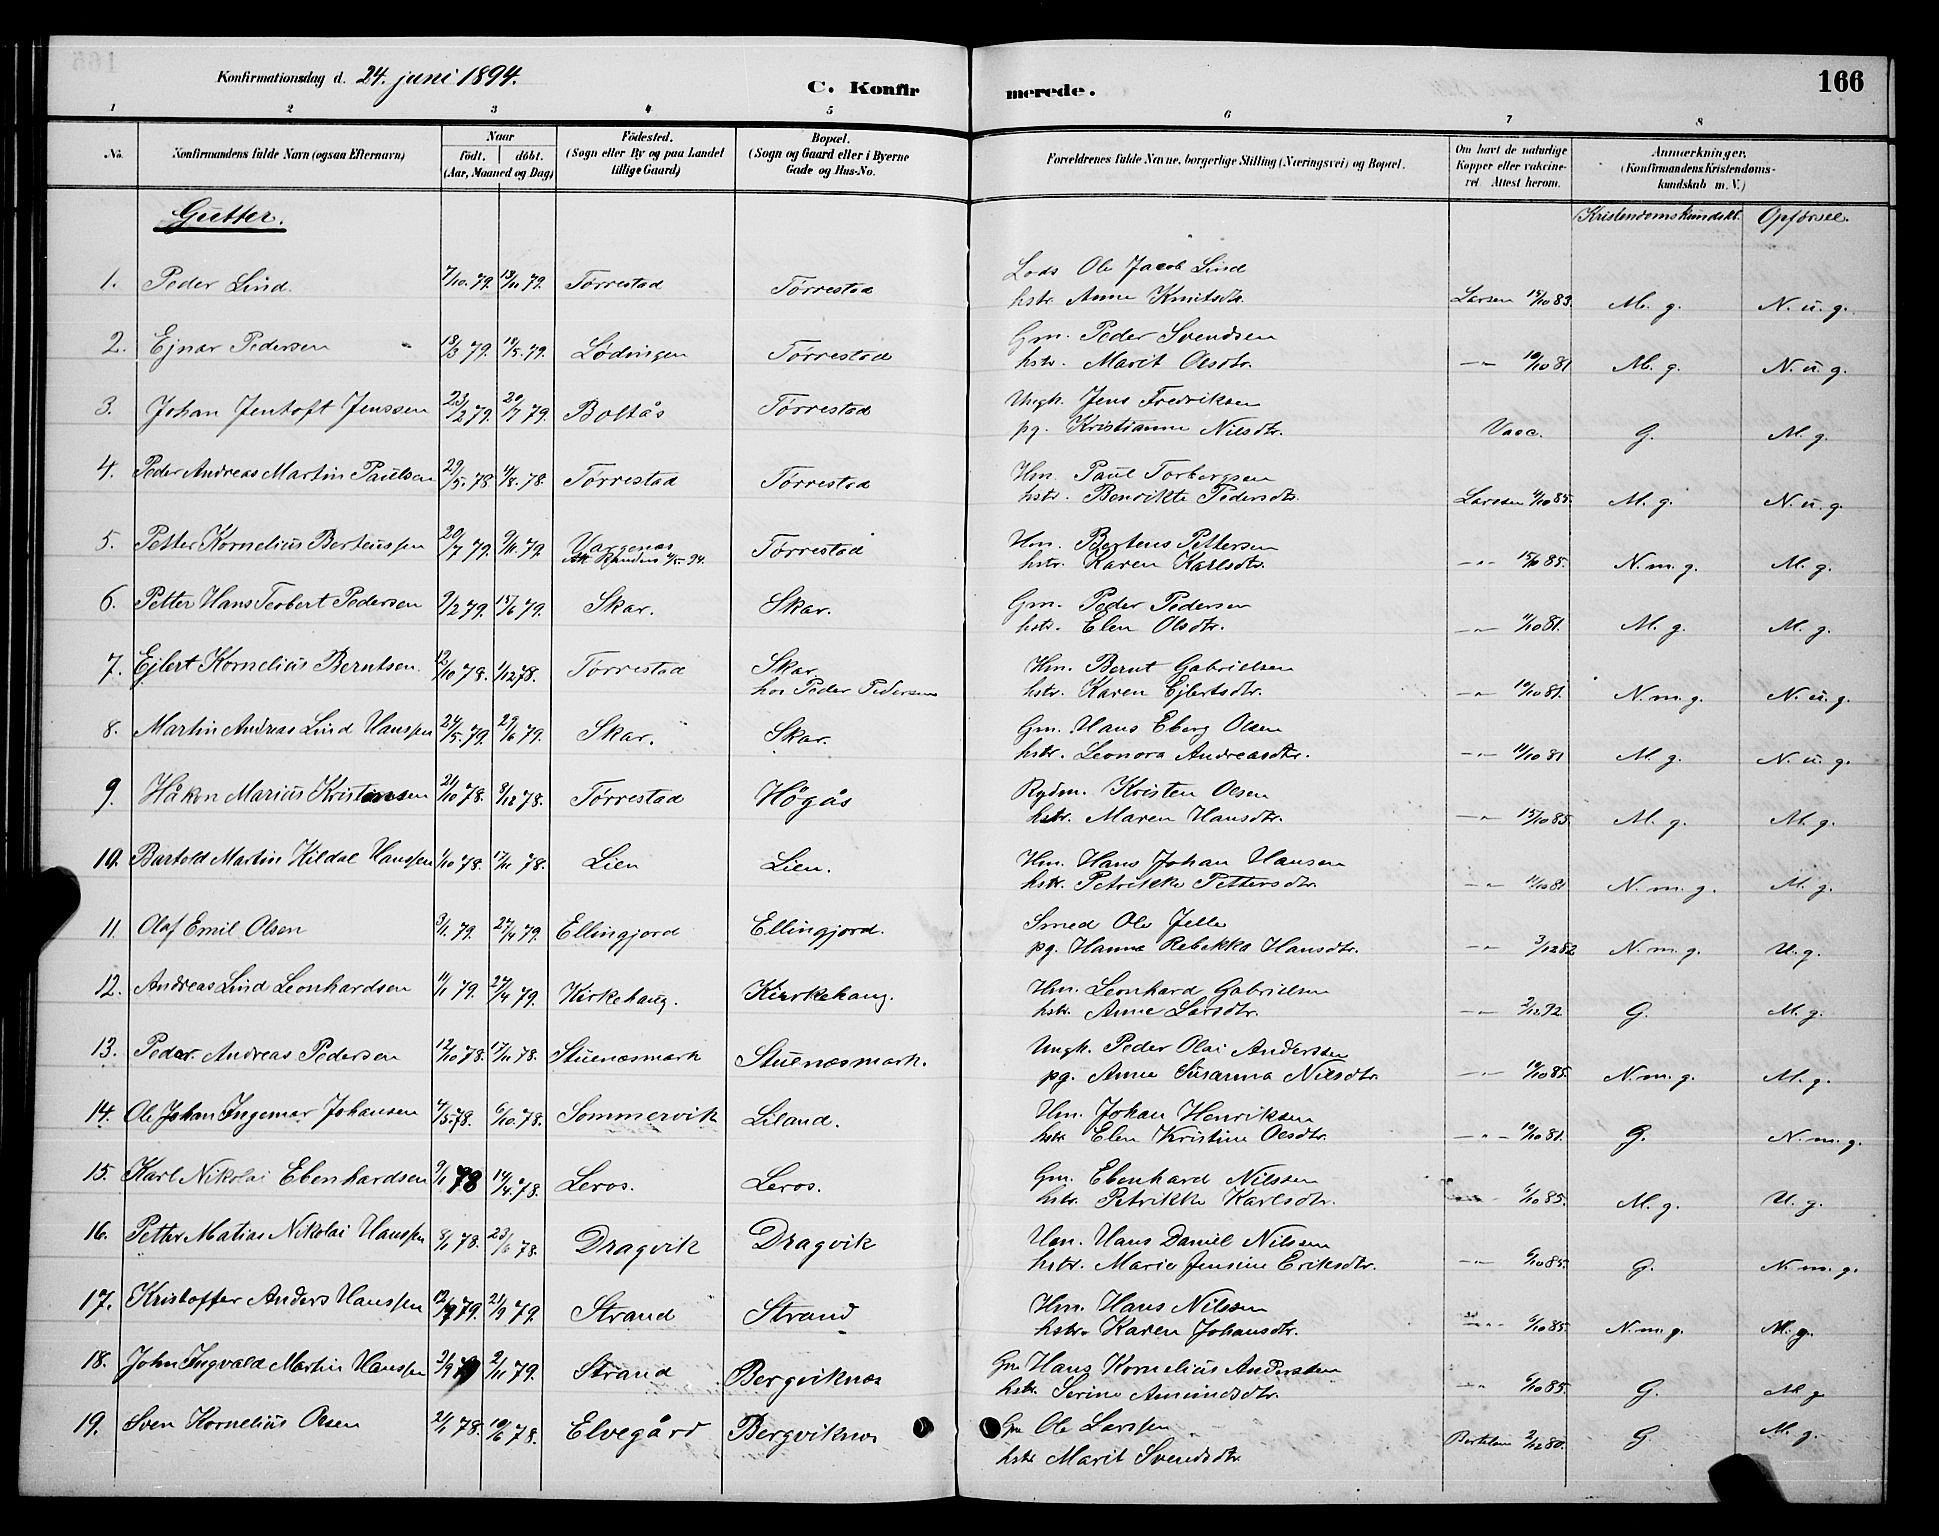 Konfirmationsdag d. 24. juni 1894.
C. Konfirmerede.
166
1 2 3 4 5 6 7 8
No.
Konfirmandens fulde Navn (ogsaa Efternavn)
Naar
født. døbt.
(Aar, Maaned og Dag)
Födested.
(Sogn eller By og paa Landet
tillige Gaard)
Bopæl.
(Sogn og Gaard eller i Byerne
Gade og Hus-No.
Forældrenes fulde Navne, borgerlige Stilling (Næringsvei) og Bopæl.
Om havt de naturlige
Kopper eller vakcine-
ret. Attest herom.
Anmærkninger.
(Konfirmandens Kristendoms-
kundskab m. V.)
Gutter.
Kristendomskundskb. Opførsel.
1. Peder Lind. 7/10.79. 13/11 79. Tørrestad Tørrestad Lods Ole Jacob Lind
hstr. Anne Knutsdtr. Larsen 15/10 83. M. g. N. u. g.
2. Ejnar Pedersen 13/3 79. 18/5.79. Lødingen Tørrestad Gm. Peder Svendsen
hstr. Marit Olsdtr. —"— 10/10 81 M. g. N. u. g.
3. Johan Jentoft Jenssen 23/2 79. 20/7 79. Boltås Tørrestad Ungk. Jens Fredriksen
pg. Kristianne Nilsdtr. Vacc. G. M. g.
4. Peder Andreas Martin Paulsen 29/5.78 4/8.78. Tørrestad Tørrestad Hm. Paul Torbergsen
hstr. Benrikte Pedersdtr. Larssen 6/10 85. M. g. N. u. g.
5. Petter Kornelius Berteussen 20/7 79. 9/11.79. Vargenæs Tørrestad Hm. Berteus Pettersen
hstr. Karen Karlsdtr. —"— 15/10 85. N. m. g. M. g.
6. Petter Hans Teobert Pedersen 9/2 79. 15/6 79. Skar. Skar. Gm. Peder Pedersen
hstr. Elen Olsdtr. —"— 11/10 81. M. g. M. g.
7. Ejlert Kornelius Berntsen. 12/10 78. 1/12 78. Tørrestad Skar
hos Peder Pedersen Hm. Bernt Gabrielsen
hstr. Karen Ejlertsdtr. —"— 10/10 81. N. m. g. N. u. g.
8. Martin Andreas Lind Hanssen 24/5.79. 29/6 79. Skar. Skar. Gm. Hans Eberg Olsen
hstr. Leonora Andreasdtr. —"— 11/10 81 M. g. N. u. g.
9. Håkon Marius Kristensen 21/10 78. 8/12 78. Tørrestad Høgås Rydm. Kristen Olsen
hstr. Maren Hansdtr. —"— 15/10 85. M. g. M. g.
10. Bartold Martin Kildal Hanssen 1/10 78. 17/11 78. Lien Lien. Hm. Hans Johan Hansen
hstr. Petrikke Pettersdtr. —"— 11/10 81 N. m. g. M. g.
11. Olaf Emil Olsen 3/1. 79. 27/4 79. Ellingjord Ellingjord. Smed Ole Jelle
pg. Hanna Rebekka Hansdtr. —"— 3/12 82 N. m. g. U. g.
12. Andreas Lind Leonhardsen 11/1 79. 27/4 79. Kirkehaug. Kirkehaug. Hm. Leonhard Gabrielsen
hstr. Anne Larsdtr. —"— 2/12.92 G. M. g.
13. Peder Andreas Pedersen 12/10 78. 17/11 78. Stuenæsmark Stuenæsmark. Ungk. Peder Olai Anderssen
pg. Anne Susanna Nilsdtr. —"— 10/10 85. N. m. g. M. g.
14. Ole Johan Ingemar Johansen 7/5.78. 6/10.78. Sommervik Liland. Hm. Johan Henriksen
hstr. Elen Kristine Olsdtr. —"— 10/10 81. G. N. m. g.
15. Karl Nikolai Ebenhardsen 9/1 78 14/4.78. Leros. Leros. Gm. Ebenhard Nilssen
hstr. Petrikke Karlsdtr. —"— 6/10 85. M. g. U. g.
16. Petter Matias Nikolai Hanssen 8/1 78. 23/6 78. Dragvik Dragvik Hm. Hans Daniel Nilssen
hstr. Marie Jensine Eriksdtr. —"— 6/10 85. G. N. m. g.
17. Kristoffer Anders Hanssen 12/7 79. 21/9 79. Strand Strand Hm. Hans Nilssen
hstr. Karen Johansdtr. —"— 6/10 85. N. m. g. M. g.
18. John Ingvald Martin Hanssen 21/9 79 2/11 79. Strand Bergviknæs Gm Hans Kornelius Anderssen
hstr. Serine Amundsdtr. —"— 6/10 85. G. M. g
19. Sven Kornelius Olsen 24/1 78. 10/6 78. Elvegård Bergviknæs Gm Ole Larssen
hstr Marit Svendsdtr Bertelsen 2/12 80. G. M. g.